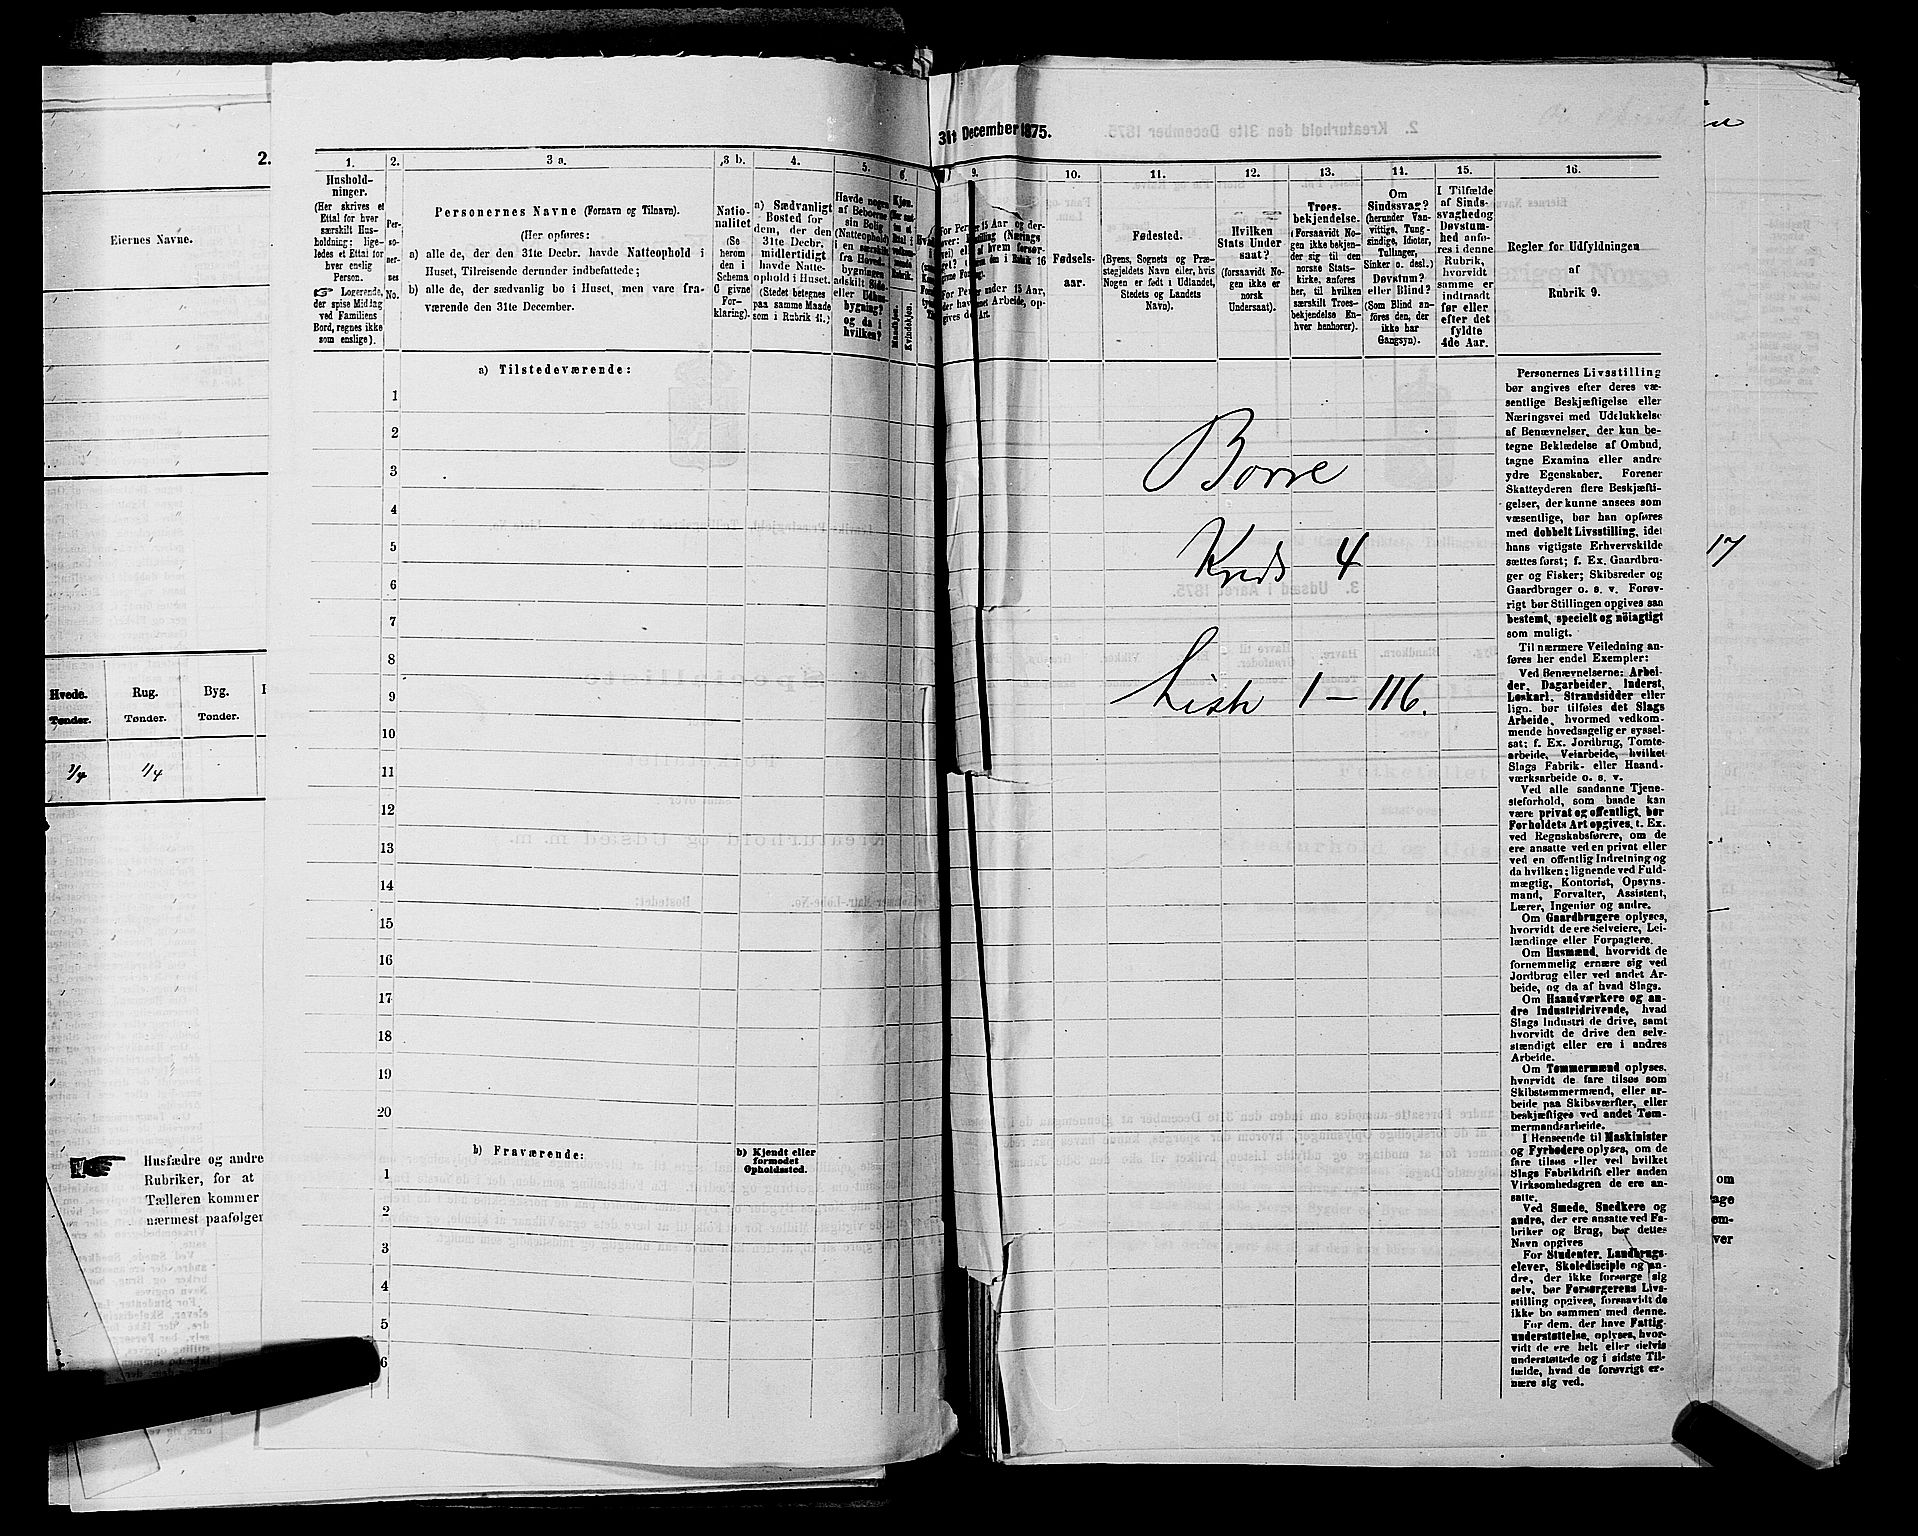 2.
Eiernes Navne.
Hvede. Rug. Byg.
Tønder. Tønder. Tønder.
1/4 1/4
Husfædre og andre
Rubriker, for at
Tælleren kommer
nærmest paafølger
31t December 1875.
1.
Hushold-
ninger.
(Her skrives et
Ettal for hver
særskilt Hus-
holdning; lige-
ledes et Ettal for
hver enslig
Person.
☞ Logerende,
der spise Middag
ved Familiens
Bord, regnes ikke
som enslige).
2.
Per-
so-
ner-
nes
No.
3 a.
Personernes Navne (Fornavn og Tilnavn).
(Her opføres:
a) alle de, der den 31te Decbr. havde Natteophold i
Huset, Tilreisende derunder indbefattede;
b) alle de, der sædvanlig bo i Huset, men vare fra-
værende den 31te December.
3 b.
Natio-
nalitet
(Se
herom
den i
Schema
C givne
For-
klaring).
4.
a) Sædvanligt
Bosted for
dem, der den
31te Decbr.
midlertidigt
havde Natte-
ophold i Huset.
(Stedet betegnes
paa samme Maade
som i Rubrik 11.)
5.
Havde nogen
af Beboerne
sin Bolig
(Natteophold)
i en særskilt
fra Hoved-
bygningen
adskilt Side-
eller Udhus-
bygning?
og da i
hvilken?
6.
Kjøn.
Mandkjøn.
Kvindekjøn.
9.
10.
Fødsels-
aar.
11.
Fødested.
(Byens, Sognets og Præ-
stegjeldets Navn eller, hvis
Nogen er født i Udlandet,
Stedets og Landets
Navn).
12.
Hvilken
Stats Under
saat?
(forsaavidt No-
gen ikke er
norsk
Undersaat).
13.
Troes-
bekjendelse.
(Forsaavidt No-
gen ikke bekjen-
der sig til den
norske Stats-
kirke, anføres
her, til hvilken
særskilt Troes-
bekjendelse En-
hver henhører).
14.
Om
Sindssvag?
(herunder Van-
vittige, Tung-
sindige, Idioter,
Tullinger,
Sinker o. desl.)
Døvstum?
eller Blind?
(Som Blind an-
føres den, der
ikke har
Gangsyn).
15.
I Tilfælde
af Sinds-
svaghed og
Døvstum-
hed anfø-
res i denne
Rubrik,
hvorvidt
samme er
indtraadt
før eller
efter det
fyldte
4de Aar.
16.
Regler for Udfyldningen
af
Rubrik 9.
a) Tilstedeværende:
1
2
3
4
5
6
7
8
9
10
11
12
13
14
15
16
17
18
19
20
b) Fraværende:
b) Kjendt eller
formodet
Opholdssted.
1
2
3
4
5
6
Borre
Kreds 4
Liste 1 — 116.
Personernes Livsstilling
bør angives efter deres væ-
sentlige Beskjæftigelse eller
Næringsvei med Udelukkelse
af Benævnelser, der kun be-
tegne Beklædelse af Ombud,
tagne Examina eller andre
ydre Egenskaber. Forener
Skatteyderen flere Beskjæfti-
gelser, der kunne ansees som
væsentlige, bør han opføres
med dobbelt Livsstilling, idet
hans vigtigste Erhvervskilde
sættes først; f. Ex. Gaardbru-
ger og Fisker; Skibsreder og
Gaardbruger o. s. v. Forøv-
rigt bør Stillingen opgives saa
bestemt, specielt og nöiagtigt
som muligt.
Til nærmere Veiledning an-
føres her endel Exempler:
Ved Benævnelserne: Arbei-
der, Dagarbeider, Inderst,
Løskarl, Strandsidder eller
lign. bør tilføies det Slags
Arbeide, hvormed vedkom-
mende hovedsagelig er syssel-
sat; f. Ex. Jordbrug, Tomte-
arbeide, Veiarbeide, hvilket
Slags Fabrik- eller Haand-
værksarbeide o. s. v.
Ved alle saadanne Tjene-
steforhold, som baade kan
være privat og offentligt, bør
Forholdets Art opgives, t. Ex.
ved Regnskabsførere, om de
ere ansatte ved en privat eller
ved en offentlig Indretning og
da hvilken; lignende ved Fuld-
mægtig, Kontorist, Opsyns-
mand, Forvalter, Assistent,
Lærer, Ingeniør og andre.
Om Gaardbrugere oplyses,
hvorvidt de ere Selveiere, Lei-
lændinge eller Forpagtere.
Om Husmænd, hvorvidt de
fornemmelig ernære sig ved
Jordbrug eller ved andet Ar-
beide, og da af hvad Slags.
Om Haandværkere og an-
dre Industridrivende, hvad
Slags Industri de drive, samt
hvorvidt de drive den selv-
stændigt eller ere i andres
Arbeide.
Om Tømmermænd oplyses,
hvorvidt de fare tilsøs som
Skibstømmermænd, eller ar-
beide paa Skibsværfter, eller
beskjæftiges ved andet Tøm-
mermandsarbeide.
I Henseende til Maskinister
og Fyrbødere oplyses, om de
fare tilsøs eller ved hvilket
Slags Fabrikdrift eller anden
Virksomhedsgren de ere an-
satte.
Ved Smede, Snedkere og
andre, der ere ansatte ved Fa-
briker og Brug, bør dettes
Navn opgives
For Studenter, Landbrugs-
elever, Skoledisciple og an-
dre, der ikke forsørge sig
selv, bør Forsørgerens Livs-
stilling opgives, forsaavidt de
ikke bo sammen med denne.
For dem, der have Fattig-
understøttelse, oplyses, hvor-
vidt de ere helt eller delvis
understøttede og i sidste Til-
fælde, hvad de forøvrigt er-
nære sig ved.
17
om
em-
ver